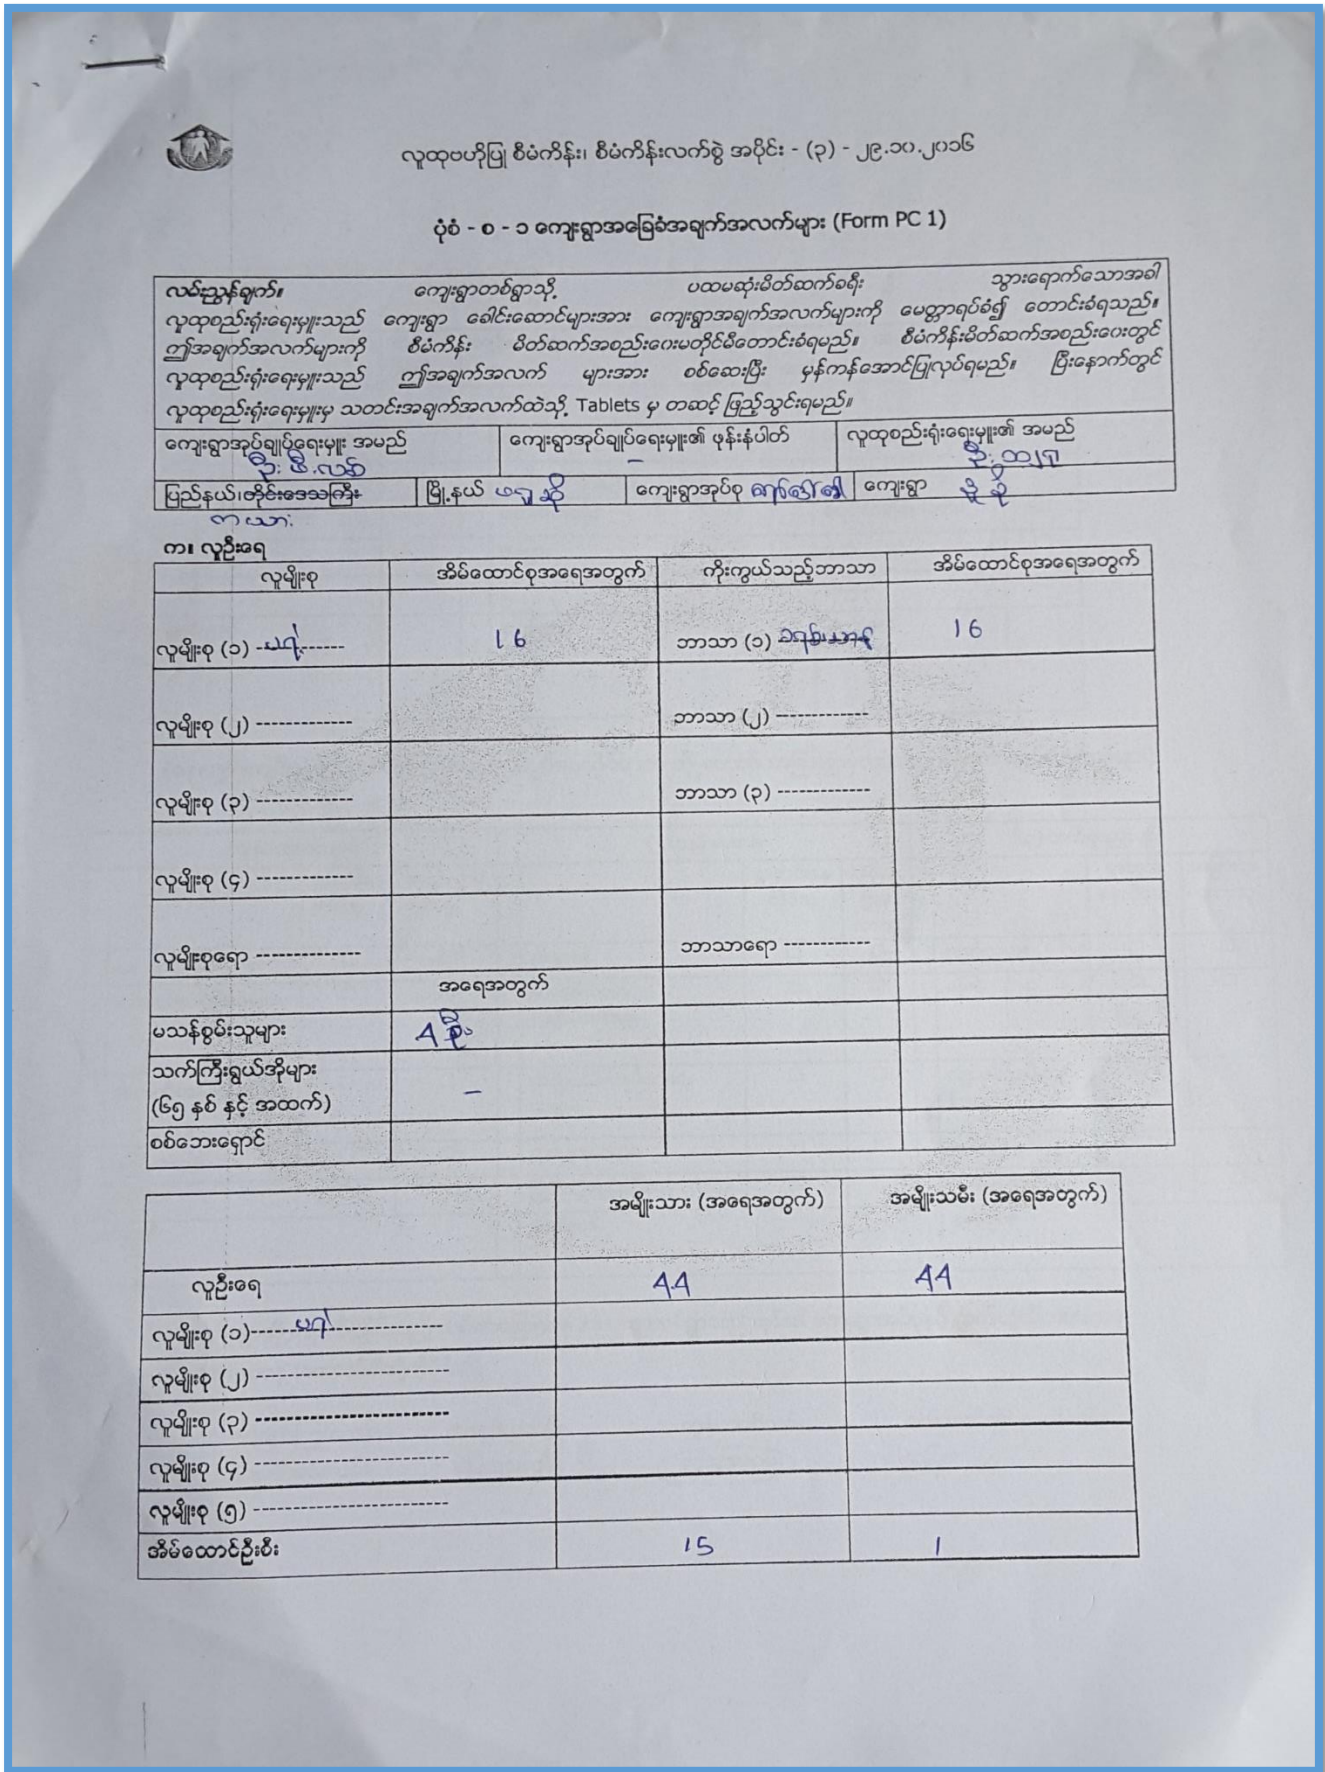 လူထုဗဟိုပြု စီမံကိန်း၊ စီမံကိန်းလက်စွဲ အပိုင်း - (၃) - ၂၉.၁၀.၂၀၁၆
ပုံစံ - စ - ၁ ကျေးရွာအခြေခံအချက်အလက်များ (Form PC 1)
လမ်းညွှန်ချက်။ ကျေးရွာတစ်ရွာသို့ ပထမဆုံးမိတ်ဆက်ခရီး သွားရောက်သောအခါ
လူထုစည်းရုံးရေးမှူးသည် ကျေးရွာ ခေါင်းဆောင်များအား ကျေးရွာအချက်အလက်များကို မေတ္တာရပ်ခံ၍ တောင်းခံရသည်။
ဤအချက်အလက်များကို စီမံကိန်း မိတ်ဆက်အစည်းဝေးမတိုင်မီတောင်းခံရမည်။ စီမံကိန်းမိတ်ဆက်အစည်းဝေးတွင်
လူထုစည်းရုံးရေးမှူးသည် ဤအချက်အလက် များအား စစ်ဆေးပြီး မှန်ကန်အောင်ပြုလုပ်ရမည်။ ပြီးနောက်တွင်
လူထုစည်းရုံးရေးမှူးမှ သတင်းအချက်အလက်ထဲသို့ Tablets မှ တဆင့် ဖြည့်သွင်းရမည်။
ကျေးရွာအုပ်ချုပ်ရေးမှူး အမည် ကျေးရွာအုပ်ချုပ်ရေးမှူး၏ ဖုန်းနံပါတ် လူထုစည်းရုံးရေးမှူး၏ အမည်
ဦး - ဦး
ပြည်နယ်၊တိုင်းဒေသကြီး မြို့နယ် ဖရူဆို ကျေးရွာအုပ်စု ကျေးရွာ
ကယား
က။ လူဦးရေ
လူမျိုးစု အိမ်ထောင်စုအရေအတွက် ကိုးကွယ်သည့်ဘာသာ အိမ်ထောင်စုအရေအတွက်
လူမျိုးစု (၁) ------ 16 ဘာသာ (၁) ခရစ်ယာန် 16
လူမျိုးစု (၂) ------------- ဘာသာ (၂) -------------
လူမျိုးစု (၃) ------------- ဘာသာ (၃) -------------
လူမျိုးစု (၄) -------------
လူမျိုးစုရော -------------- ဘာသာရော ------------
အရေအတွက်
မသန်စွမ်းသူများ 4 ဦး
သက်ကြီးရွယ်အိုများ
(၆၅ နှစ် နှင့် အထက်) -
စစ်ဘေးရှောင်
အမျိုးသား (အရေအတွက်) အမျိုးသမီး (အရေအတွက်)
လူဦးရေ 44 44
လူမျိုးစု (၁)-------------------------
လူမျိုးစု (၂) -------------------------
လူမျိုးစု (၃) -------------------------
လူမျိုးစု (၄) -------------------------
လူမျိုးစု (၅) -------------------------
အိမ်ထောင်ဦးစီး 15 1